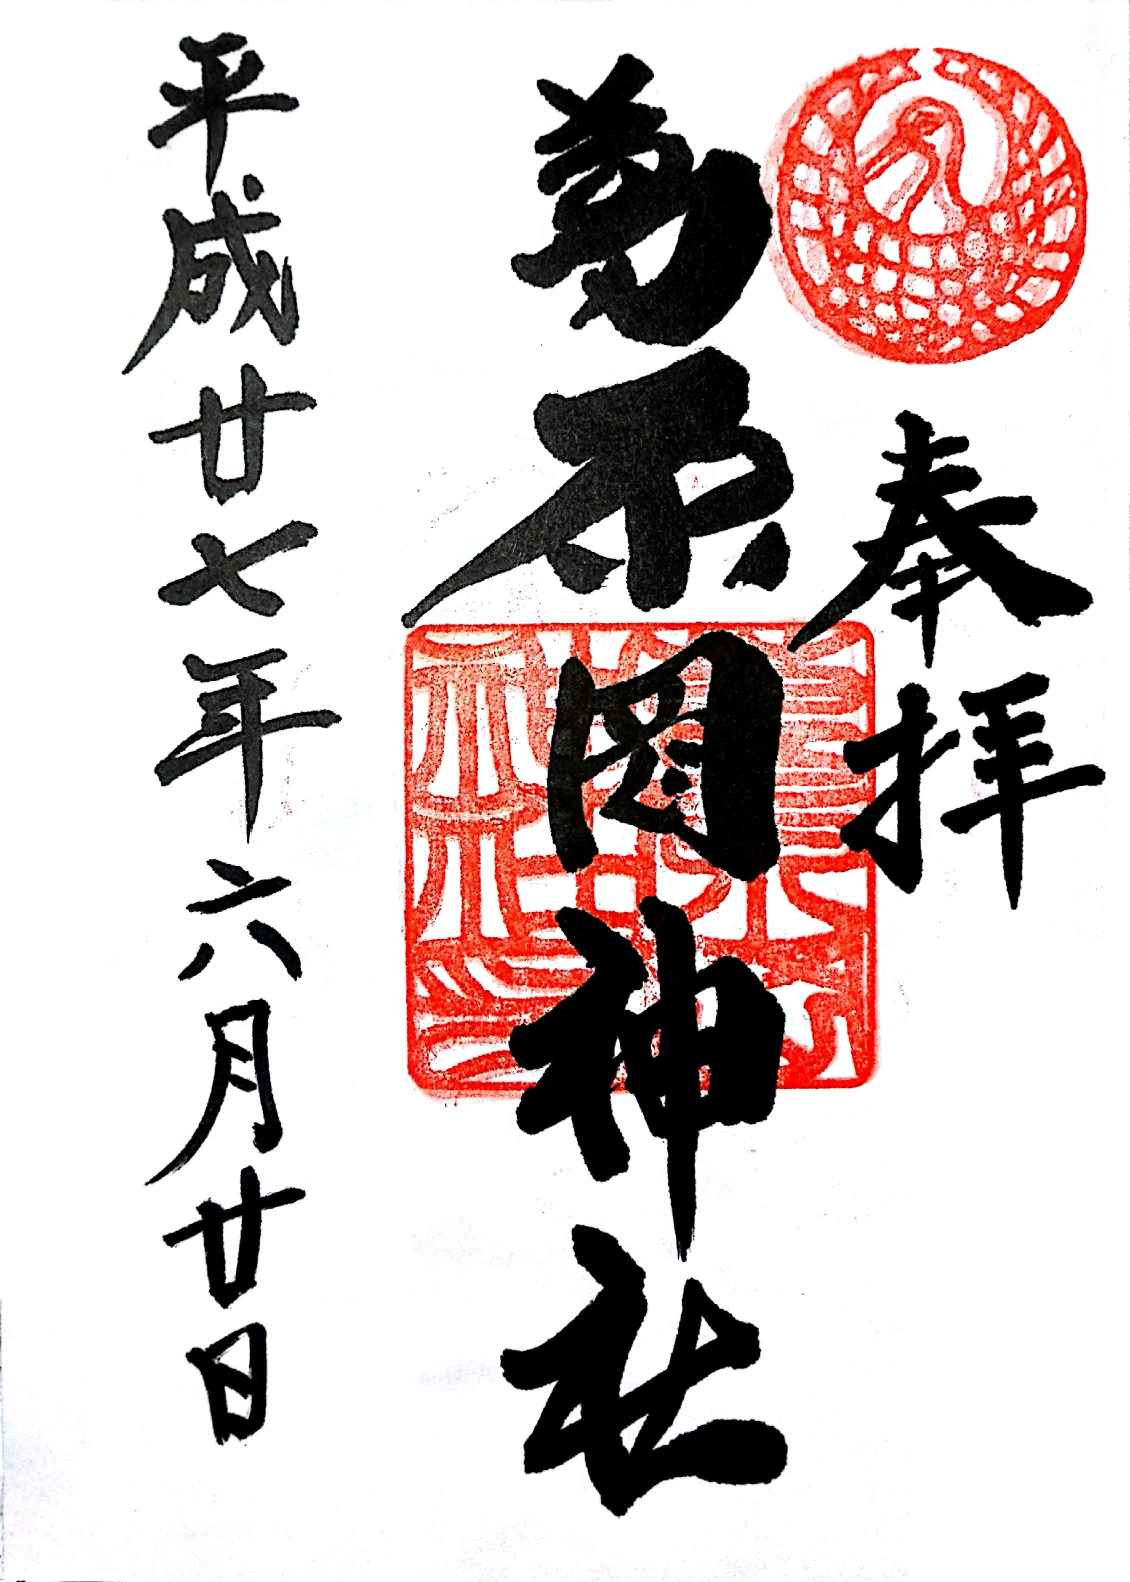 奉拝
葛原岡神社
平成廿七年六月廿日